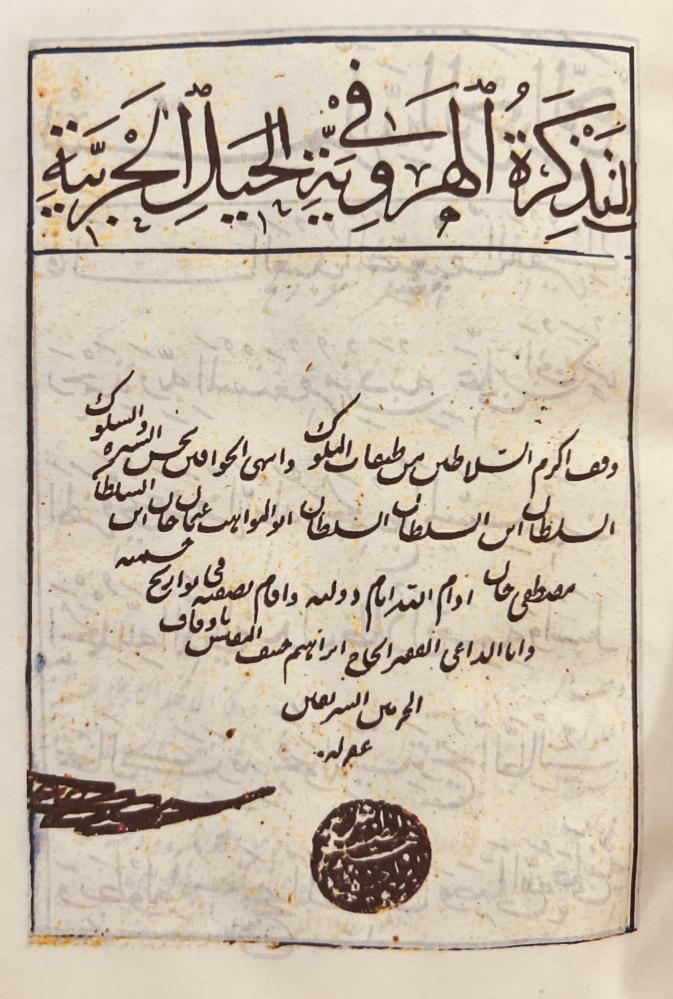 التَذْكِرَةُ ٱلهَرَوِيَّةِ فى الحِيَلِ ٱلحَرْبِيَّةِ
وقف اكرم السلاطين من طبقات الملوك وابهى الخواقين بحسن السيره والسلوك
السلطان ابن السلطان السلطان ابو المواهب عثمان خان ابن السلطان
مصطفى خان ادام الله ايام دولته واقام بصفته فى تواريخ
وانا الداعى الفقير الحاج ابراهيم حنيف المفتش باوقاف
الحرمين الشريفين
غفر له